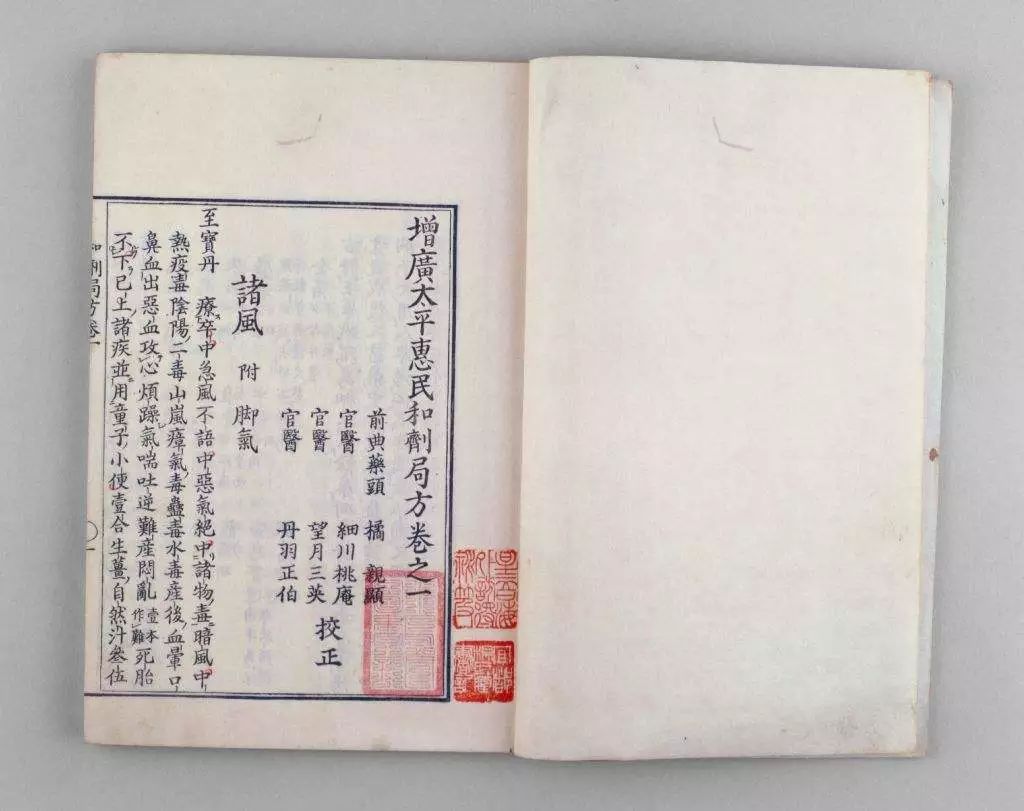 增廣太平惠民和劑局方卷之一
前典藥頭 橘 親顯
官醫 細川桃庵
官醫 望月三英
官醫 丹羽正伯 挍正
諸風 附 脚氣
至寶丹 療卒中急風不語中惡氣絕中諸物毒暗風中
熱疫毒陰陽二毒山嵐瘴氣毒蠱毒水毒產後血暈口
鼻血出惡血攻心煩躁氣喘吐逆難產悶亂壹本作難死胎
不下已上諸疾並用童子小便壹合生薑自然汁叄伍
和劑局方卷一